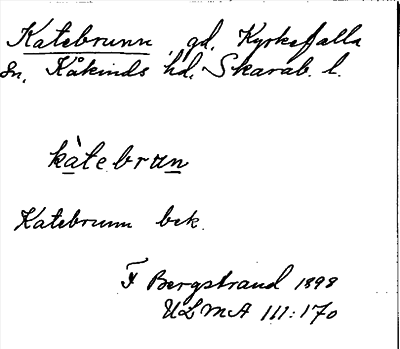 Katebrunn, gd, Kyrkefalla
sn, Kåkinds hd, Skarab. l.
kàtebrun
Katebrunn bek.
F Bergstrand 1898
ULMA 111:170